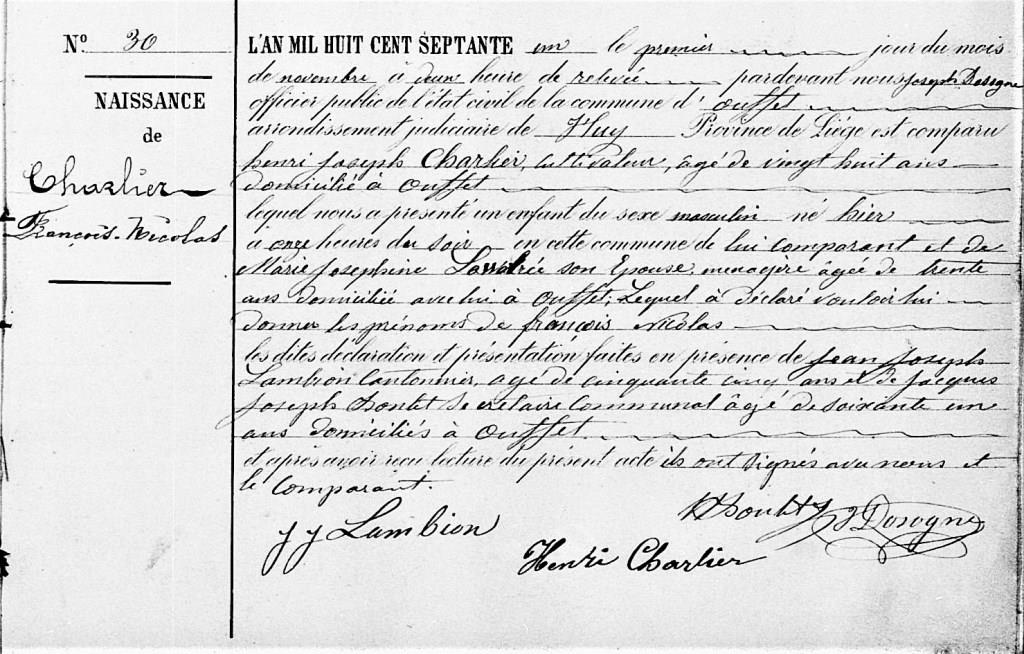 N° 30
NAISSANCE
de
Charlier
François-Nicolas
L'AN MIL HUIT CENT SEPTANTE un le premier jour du mois
de novembre à deux heure de relevée pardevant nous Joseph Dosogne
officier public de l'état civil de la commune d'Ouffet
arrondissement judiciaire de Huy Province de Liége est comparu
henri Joseph Charlier, cultivateur, agé de vingt huit ans
domicilié à Ouffet
lequel nous a présenté un enfant du sexe masculin né hier
à onze heures du soir en cette commune de lui comparant et de
Marie Josephine son Epouse, menagère âgée de trente
ans domiciliée avec lui à Ouffet; Lequel à déclaré vouloir lui
donner les prénoms de françois Nicolas
les dites déclaration et présentation faites en présence de Jean Joseph
Lambion Cantonnier, agé de cinquante cinq ans et de Jacques
Joseph Secretaire Communal âgé de soixante un
ans domiciliés à Ouffet
et après avoir reçu lecture du présent acte ils ont signés avec nous et
le Comparant.
J J Lambion
J Dosogne
Henri Charlier